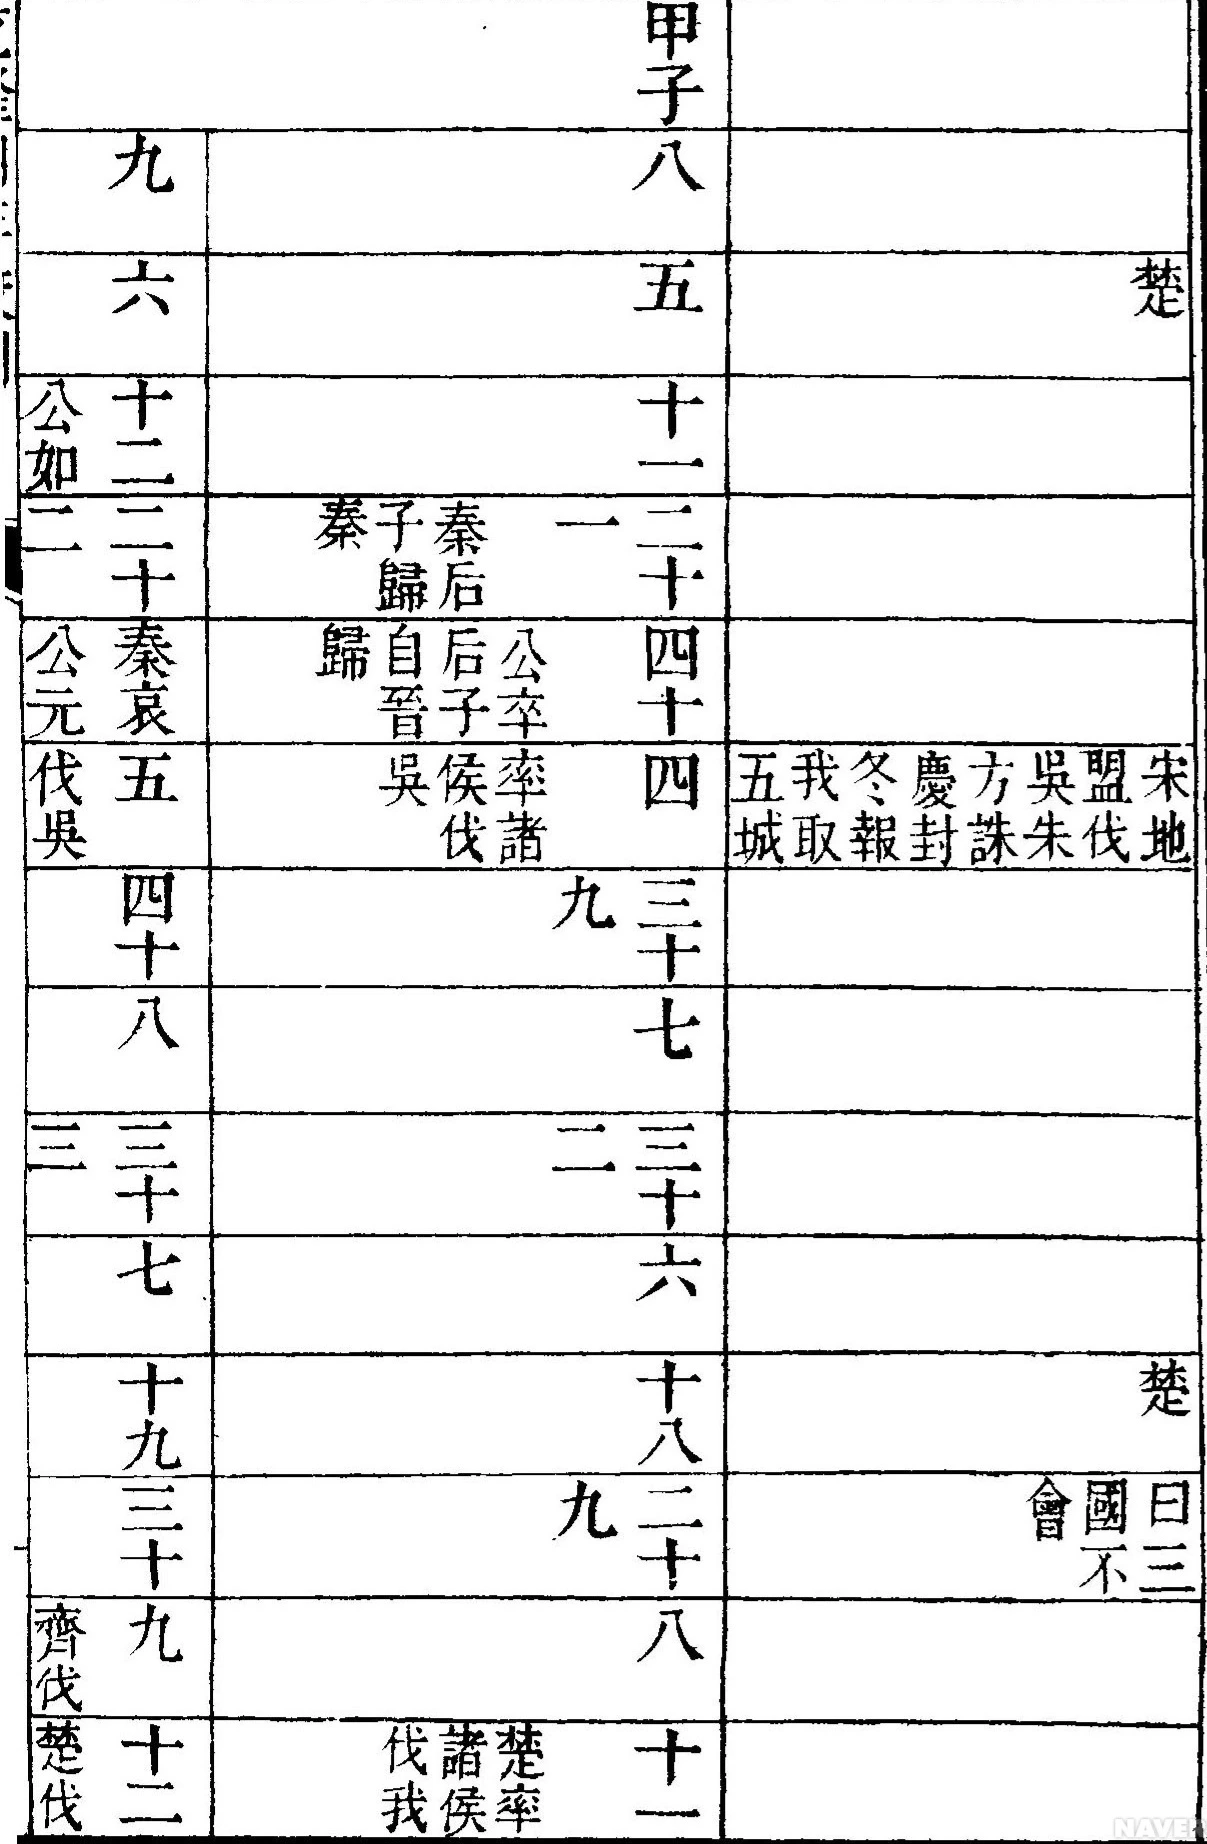 楚
宋地
盟伐
吳朱
方誅
慶封
冬報
我取
五城
楚
曰三
國不
會
甲子
八
五
十一
二十
一
秦后
子歸
秦
四十
公卒
后子
自晉
歸
四
率諸
侯伐
吳
三十
九
七
三十
二
六
十八
二十
九
八
十一
楚率
諸侯
伐我
九
六
十二
公如
二十
二
秦哀
公元
五
伐吳
四十
八
三十
三
七
十九
三十
九
齊伐
十二
楚伐
NAVER